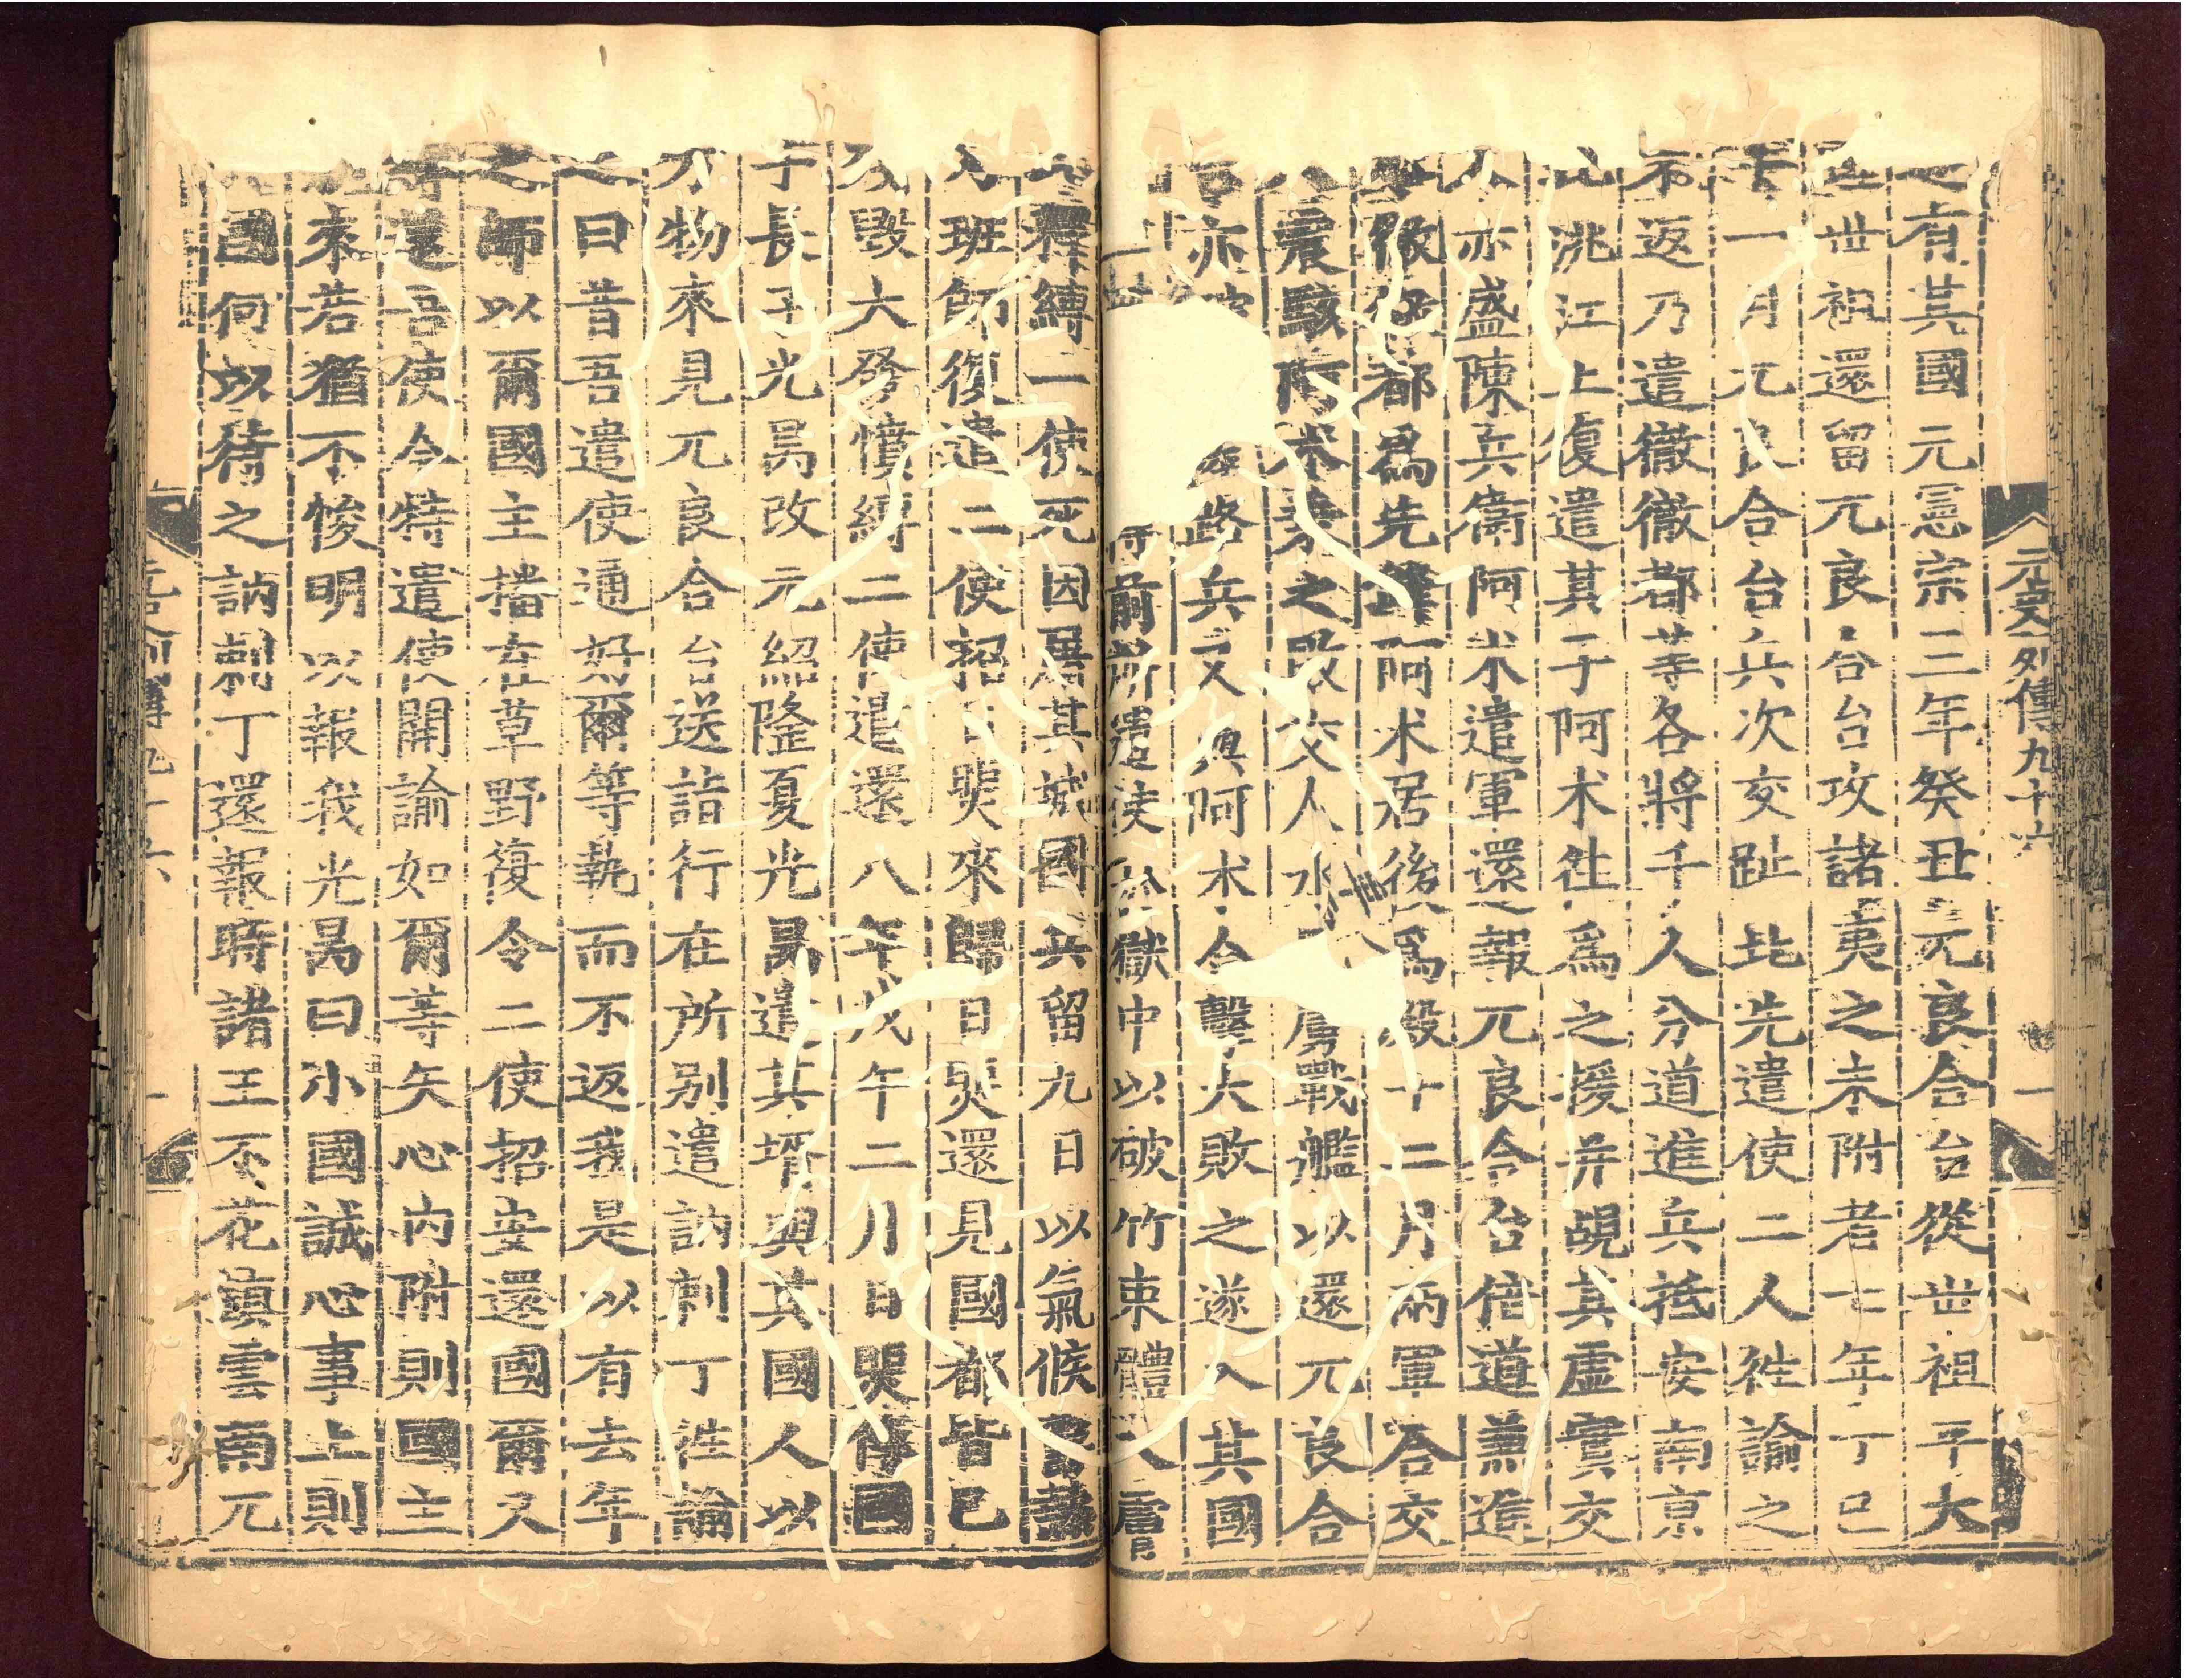 元史列傳九十六
一
有其國元憲宗三年癸丑元良合台從世祖平大
世祖還留兀良合台攻諸夷之未附者七年丁巳
十一月兀良合台兵次交趾北先遣使二人往諭之
不返乃遣徹徹都等各將千人分道進兵抵安南京
北洮江上復遣其子阿术往爲之援并覘其虛實交
人亦盛陳兵衛阿术遣軍還報兀良合台倍道兼進
徹徹都爲先鋒阿术居後爲殿十二月兩軍合交
人震駭阿术乘之敗交人水軍虜戰艦以還兀良合
台亦路兵又與阿术合擊大敗之遂入其國
得前所遣使於獄中以破竹束體入膚
釋縛一使死因屠其城國兵留九日以氣候鬱熱
乃班師復遣二使招日煚來歸日煚還見國都皆已
殘毁大發憤縛二使遣還八年戊午二月日煚傳國
于長子光昺改元紹隆夏光昺遣其壻與其國人以
方物來見兀良合台送詣行在所别遣訥剌丁往諭
之曰昔吾遣使通好爾等執而不返我是以有去年
之師以爾國主播在草野復令二使招安還國爾又
縛還吾使今特遣使開諭如爾等矢心内附則國主
來若猶不悛明以報我光昺曰小國誠心事上則
國何以待之訥剌丁還報時諸王不花鎮雲南兀